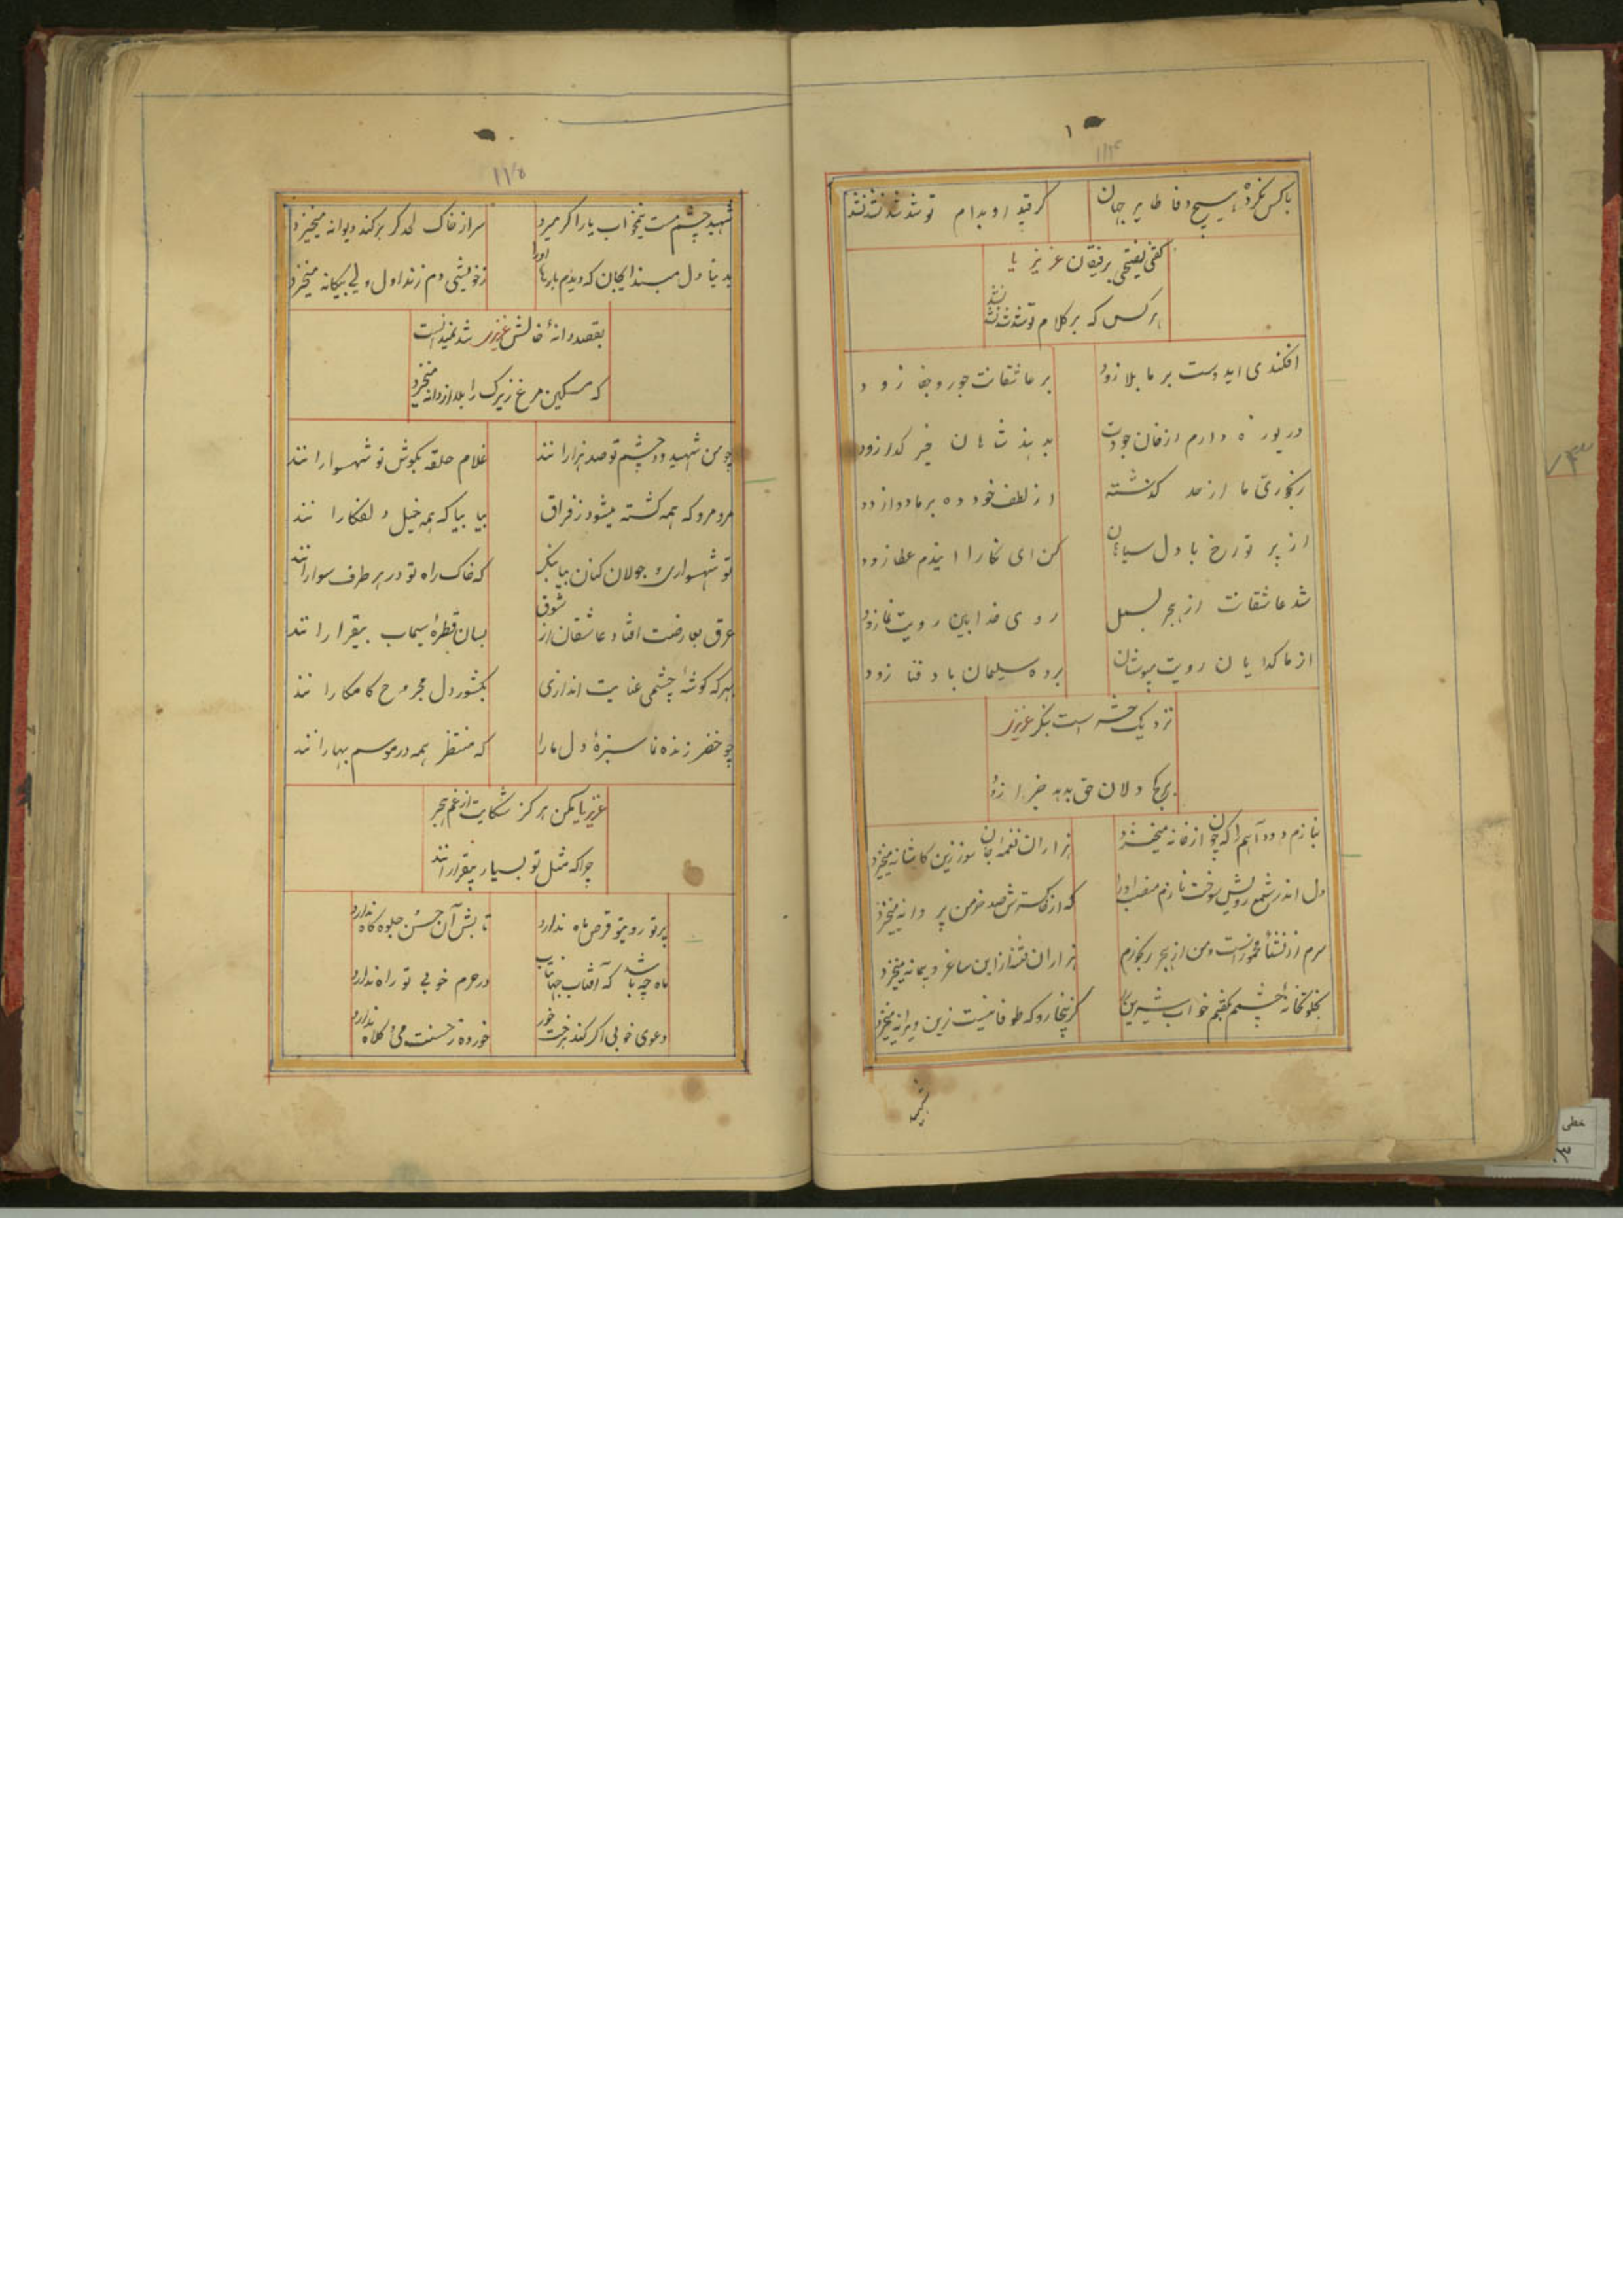 ۱
۱۱۴
باکس نکرد هیچ وفا طایر جهان کر قید او بدام تو شد شد نشد نشد
کفتی نصیحتی برفیقان عزیز یا
هرکس که بر کلام تو شد شد نشد نشد
افکندی ایدوست بر ما بلا زود بر عاشقانت جور و جفا زود
دریوزه دارم از خان جودت بدهند شاهان خیر کدا زود
رنجوری ما از حد کذشته از لطف خود ده بر ما دوا زود
از پر تو رخ با دل سیاهان کن ای نکارا ایندم عطا زود
شد عاشقانت از هجر بسمل روی خدا بین رویت نما زود
از ما کدایان رویت مپوشان برده سلیمان باد فنا زود
نزدیک حشر است بنکر عزیزر
دلان حق بدهد جزا زود
بنازم دود آهم را که چون از خانه میخیزد هزاران نغمه جان سوز زین کاشانه میخیزد
دل اندر شمع رویش سوخت نازم منصب او را که از خاکسترش صد خرمن پروانه میخیزد
سرم از نشئأ مخمور است و من از هجر رنجورم هزاران فتنه از این ساغر و پیمانه میخیزد
بخلوتخانهٔ چشمم بکفتم خواب شیرین را کریخا رو که طوفانیست زین ویرانه میخیزد
شهید
۱۱۵
شهید چشم مست نیمخواب یار اکر میرد سر از خاک لحد کر بر کند دیوانه میخیزد
بدنیا دل مبند ایجان که دیدم بارها او را ز خویشی دم زند اول ولی بیکانه میخیزد
بقصد دانهٔ خالش عزیزر شد نمیدانست
که مسکین مرغ زیرک را بلا از دانه میخیزد
چو من شهید دو چشم تو صد هزارانند غلام حلقه بکوش تو شهسوارانند
مرو مرو که همه کشته میشود ز فراق بیا بیا که همه خیل دلفکارانند
تو شهسواری و جولان کنان بیا بنکر که خاک راه تو در هر طرف سوارانند
عرق بعارضت افتاد عاشقان از شوق بسان قطرهٔ سیماب بیقرارانند
بهر که کوشهٔ چشمی عنایت اندازی بکشور دل مجروح کامکارانند
چو خضر زنده نما سبزهٔ دل ما را که منتظر همه در موسم بهارانند
عزیز یا مکن هرکز شکایت از غم هجر
چرا که مثل تو بسیار بیقرارانند
پرتو رویتو قرص ماه ندارد تابش آن حسن جلوه کاه ندارد
ماه چه باشد که آفتاب جهانتاب در حرم خوبی تو راه ندارد
دعوی خوبی اکر کند برخت خور خورده ز حسنت می و کلاه ندارد
خطی